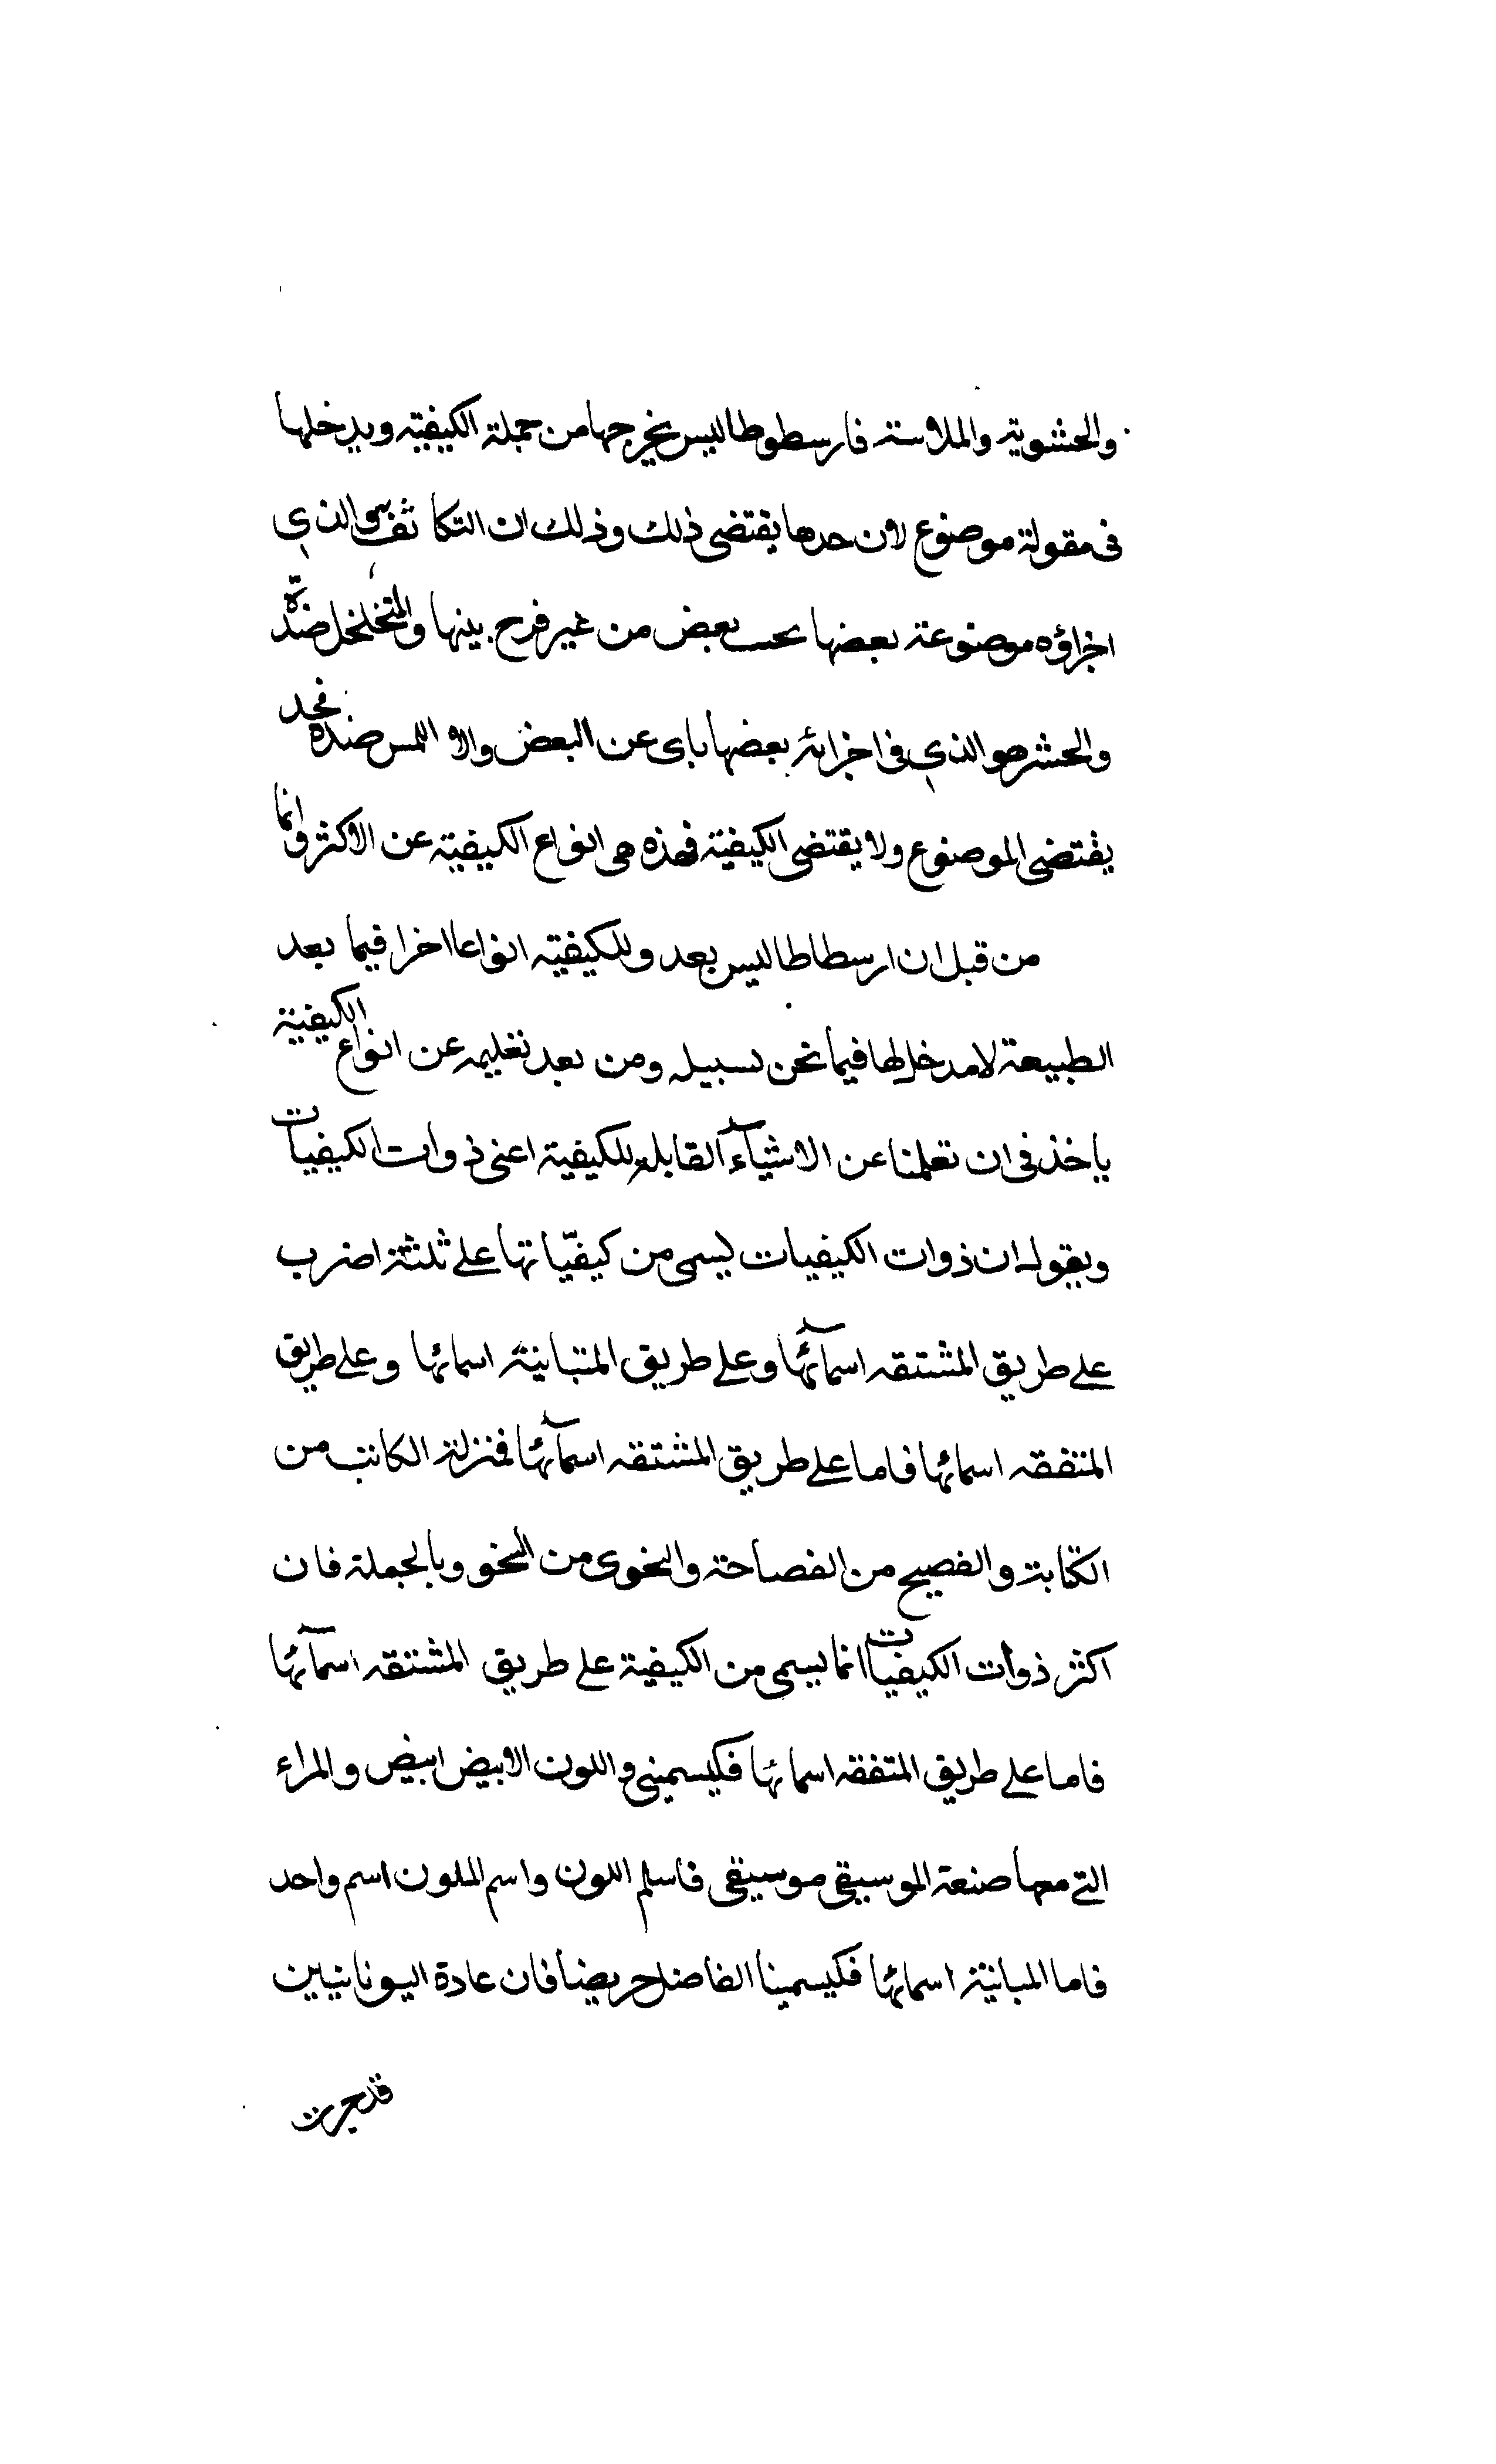 والحشوية والملاسة فارسطوطاليس يخرجها من جملة الكيفية ويدخلها
فى مقولة موضوع لان حدها يقتضى ذلك وذلك ان التكاثف هو الذي
اجزاؤه موضوعة بعضها بحسب بعض من غير فرح بينها والمتخلخل ضدّه
والحشر هو الذي فى اجزائه بعضها باى عن البعض والاملس ضده فحد
يقتضى الموضوع ولا يقتضى الكيفية فهذه هى انواع الكيفية عن الاكثر وانما
من قبل ان ارسطاطاليس بعد وللكيفية انواعا اخرا فيما بعد
الطبيعة لا مدخل لها فيما نحن بسبيله ومن بعد تعليمه عن انواع الكيفية
ياخذ فى ان تعلمنا عن الاشيآء القابلة للكيفية اعنى ذوات الكيفيات
ويقول ان ذوات الكيفيات يسمى من كيفيّاتها على ثلثة اضرب
على طريق المشتقه اسمآئها وعلى طريق المتباينة اسمائها وعلى طريق
المتفقه اسمائها فاما على طريق المشتقه اسمآئها فمنزلة الكاتب من
الكتابة والفصيح من الفصاحة والنحوى من النحو وبالجملة فان
اكثر ذوات الكيفيات انما يسمى من الكيفية على طريق المشتقه اسمآئها
فاما على طريق المتفقه اسمائها فكيسمينى واللون الابيض ابيض والمراء
التى معها صنعة الموسيقى موسيقى فاسلم اللون واسم الملون اسم واحد
فاما المباينة اسمائها فكيسمينا الفاضل حريضا فان عادة اليونانيين
قد جرت